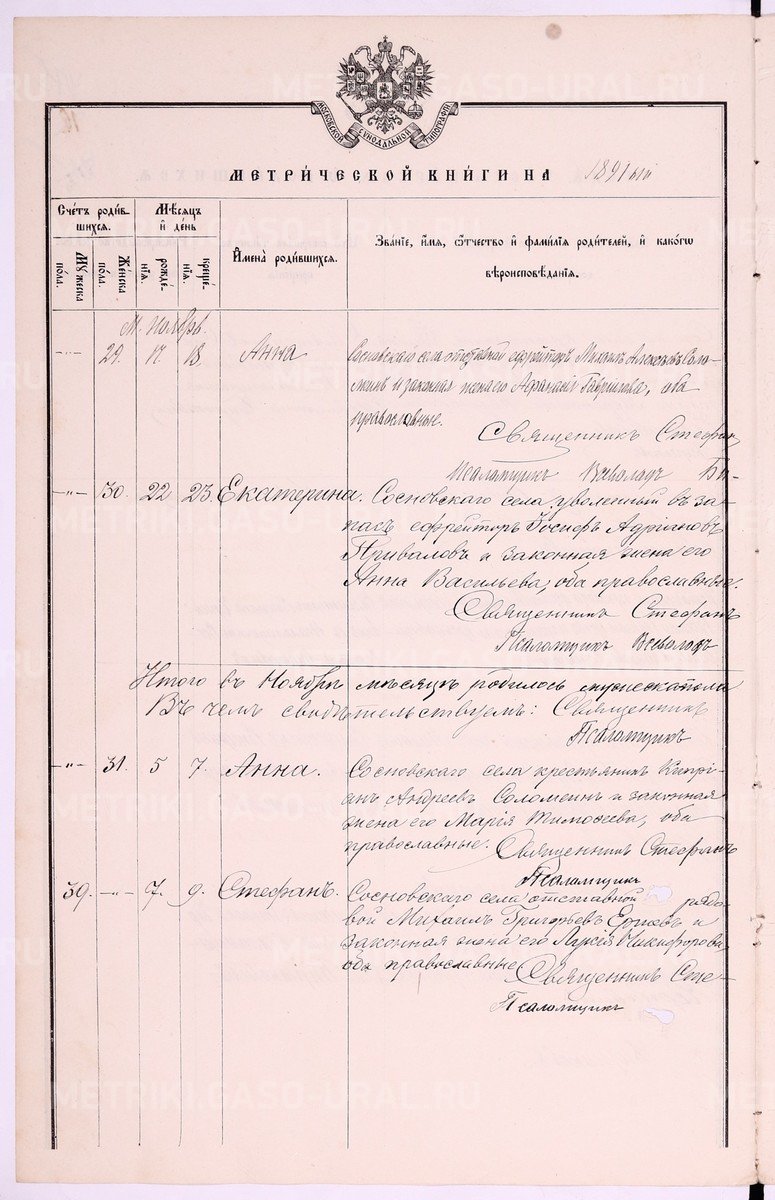 МОСКОВСКОЙ СУНОДАЛЬНОЙ ТИПОГРАФІИ
МЕТРИ́ЧЕСКОЙ КНИ́ГИ НА 1891 ый
Сче́тъ роди́вшихся.
Мѣ́сяцъ и де́нь
Имена̀ роди́вшихся.
Зва́нїе, и́мя, ѻ҆́тчество и фами́лїя роди́телей, и како́гѡ вѣроисповѣ́данїя.
Му́жеска по́ла.
Же́нска по́ла.
рожде́нїя.
креще́нїя.
М. Ноябрь.
29. 17 18. Анна
Сосновскаго села отставной ефрейторъ Соло-
минъ и законная жена его Гаврилова, оба
православные.
Священникъ Стефан
Псаломщикъ Всеволодъ Би-
-"- 30. 22 23. Екатерина. Сосновскаго села уволенный въ за-
пасъ ефрейторъ Іосифъ Адріановъ
Приваловъ и законная жена его
Анна Васильева, оба православные.
Священникъ Стефанъ
Псаломщикъ Всеволодъ
Итого въ Ноябрѣ мѣсяцѣ родилось мужеска пола
Въ чемъ свидѣтельствуемъ: Священникъ
Псаломщикъ
-"- 31. 5 7. Анна. Сосновскаго села крестьянинъ Кипрі-
анъ Андреевъ Соломеинъ и законная
жена его Марія Тимофеева, оба
православные. Священникъ Стефанъ
Псаломщикъ
39. -"- 7. 9. Стефанъ. Сосновскаго села отставной рядо-
вой Михаилъ Григорьевъ и
законная жена его Лукія Никифорова,
оба православные Священникъ Сте-
Псаломщикъ
METRIKI.GASO-URAL.RU